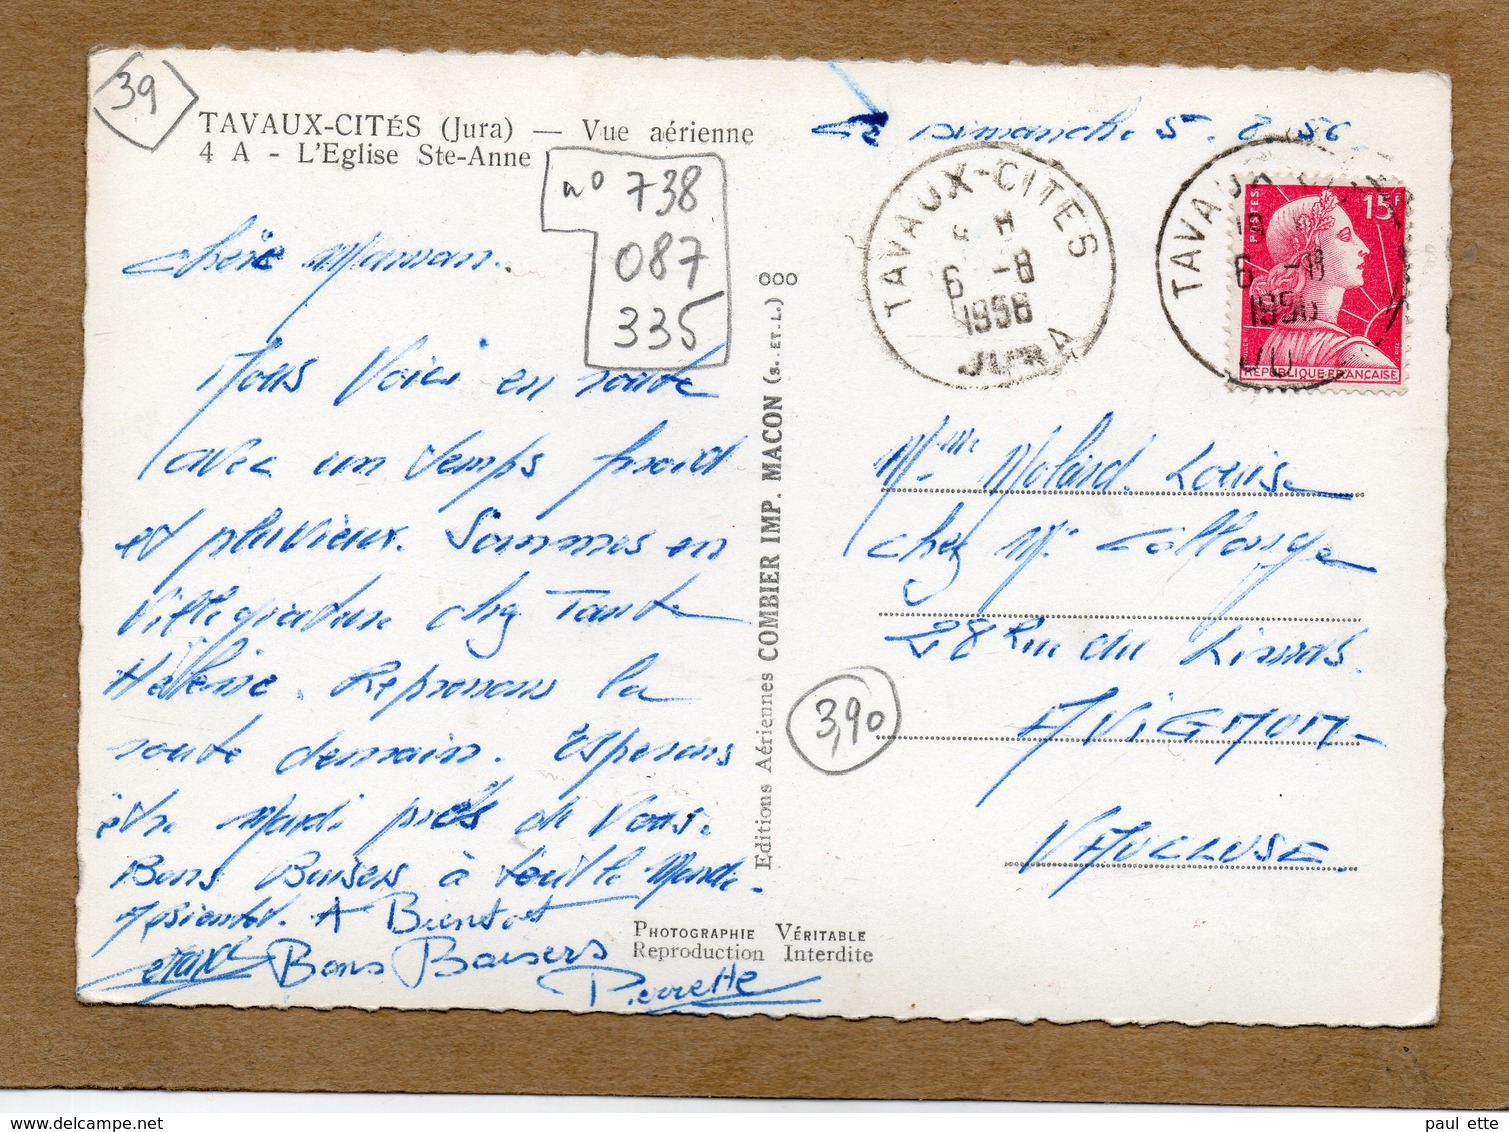 39
TAVAUX-CITÉS (Jura) — Vue aérienne
4 A - L'Eglise Ste-Anne
n° 738
087
335
Le Dimanche 5. 8. 56
TAVAUX-CITES
6 -8
1956
JURA
TAVAUX-CITES
18
6 -8
1956
JU
POSTES
15F
REPUBLIQUE FRANÇAISE
Chère Maman.
Nous Voici en route
avec un temps froid
et pluvieux. Sommes en
Villégiature chez Tante
Hélène. Reprenons la
route demain. Espérons
être Mardi près de Vous.
Bons Baisers à tout le Monde
A Bientôt. A Bientot
Bons Baisers
Pierrette
Editions Aériennes COMBIER IMP. MACON (S.-ET-L.) 000
Mme Molard Louise
chez Mr Collonge
28 Rue du Limas
AVIGNON
VAUCLUSE
3,90
PHOTOGRAPHIE VÉRITABLE
Reproduction Interdite
delcampe.net
paul ette